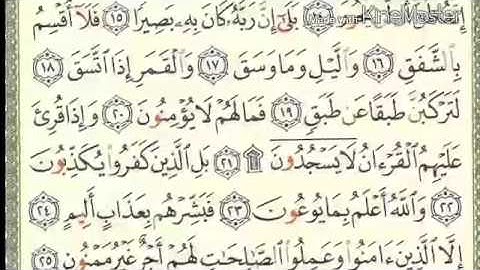 بَلَىٰٓ إِنَّ رَبَّهُۥ كَانَ بِهِۦ بَصِيرًا ١٥ فَلَآ أُقْسِمُ
بِٱلشَّفَقِ ١٦ وَٱلَّيْلِ وَمَا وَسَقَ ١٧ وَٱلْقَمَرِ إِذَا ٱتَّسَقَ ١٨
لَتَرْكَبُنَّ طَبَقًا عَن طَبَقٍ ١٩ فَمَا لَهُمْ لَا يُؤْمِنُونَ ٢٠ وَإِذَا قُرِئَ
عَلَيْهِمُ ٱلْقُرْءَانُ لَا يَسْجُدُونَ ۩ ٢١ بَلِ ٱلَّذِينَ كَفَرُوا۟ يُكَذِّبُونَ
٢٢ وَٱللَّهُ أَعْلَمُ بِمَا يُوعُونَ ٢٣ فَبَشِّرْهُم بِعَذَابٍ أَلِيمٍ ٢٤
إِلَّا ٱلَّذِينَ ءَامَنُوا۟ وَعَمِلُوا۟ ٱلصَّٰلِحَٰتِ لَهُمْ أَجْرٌ غَيْرُ مَمْنُونٍۭ ٢٥
KineMaster